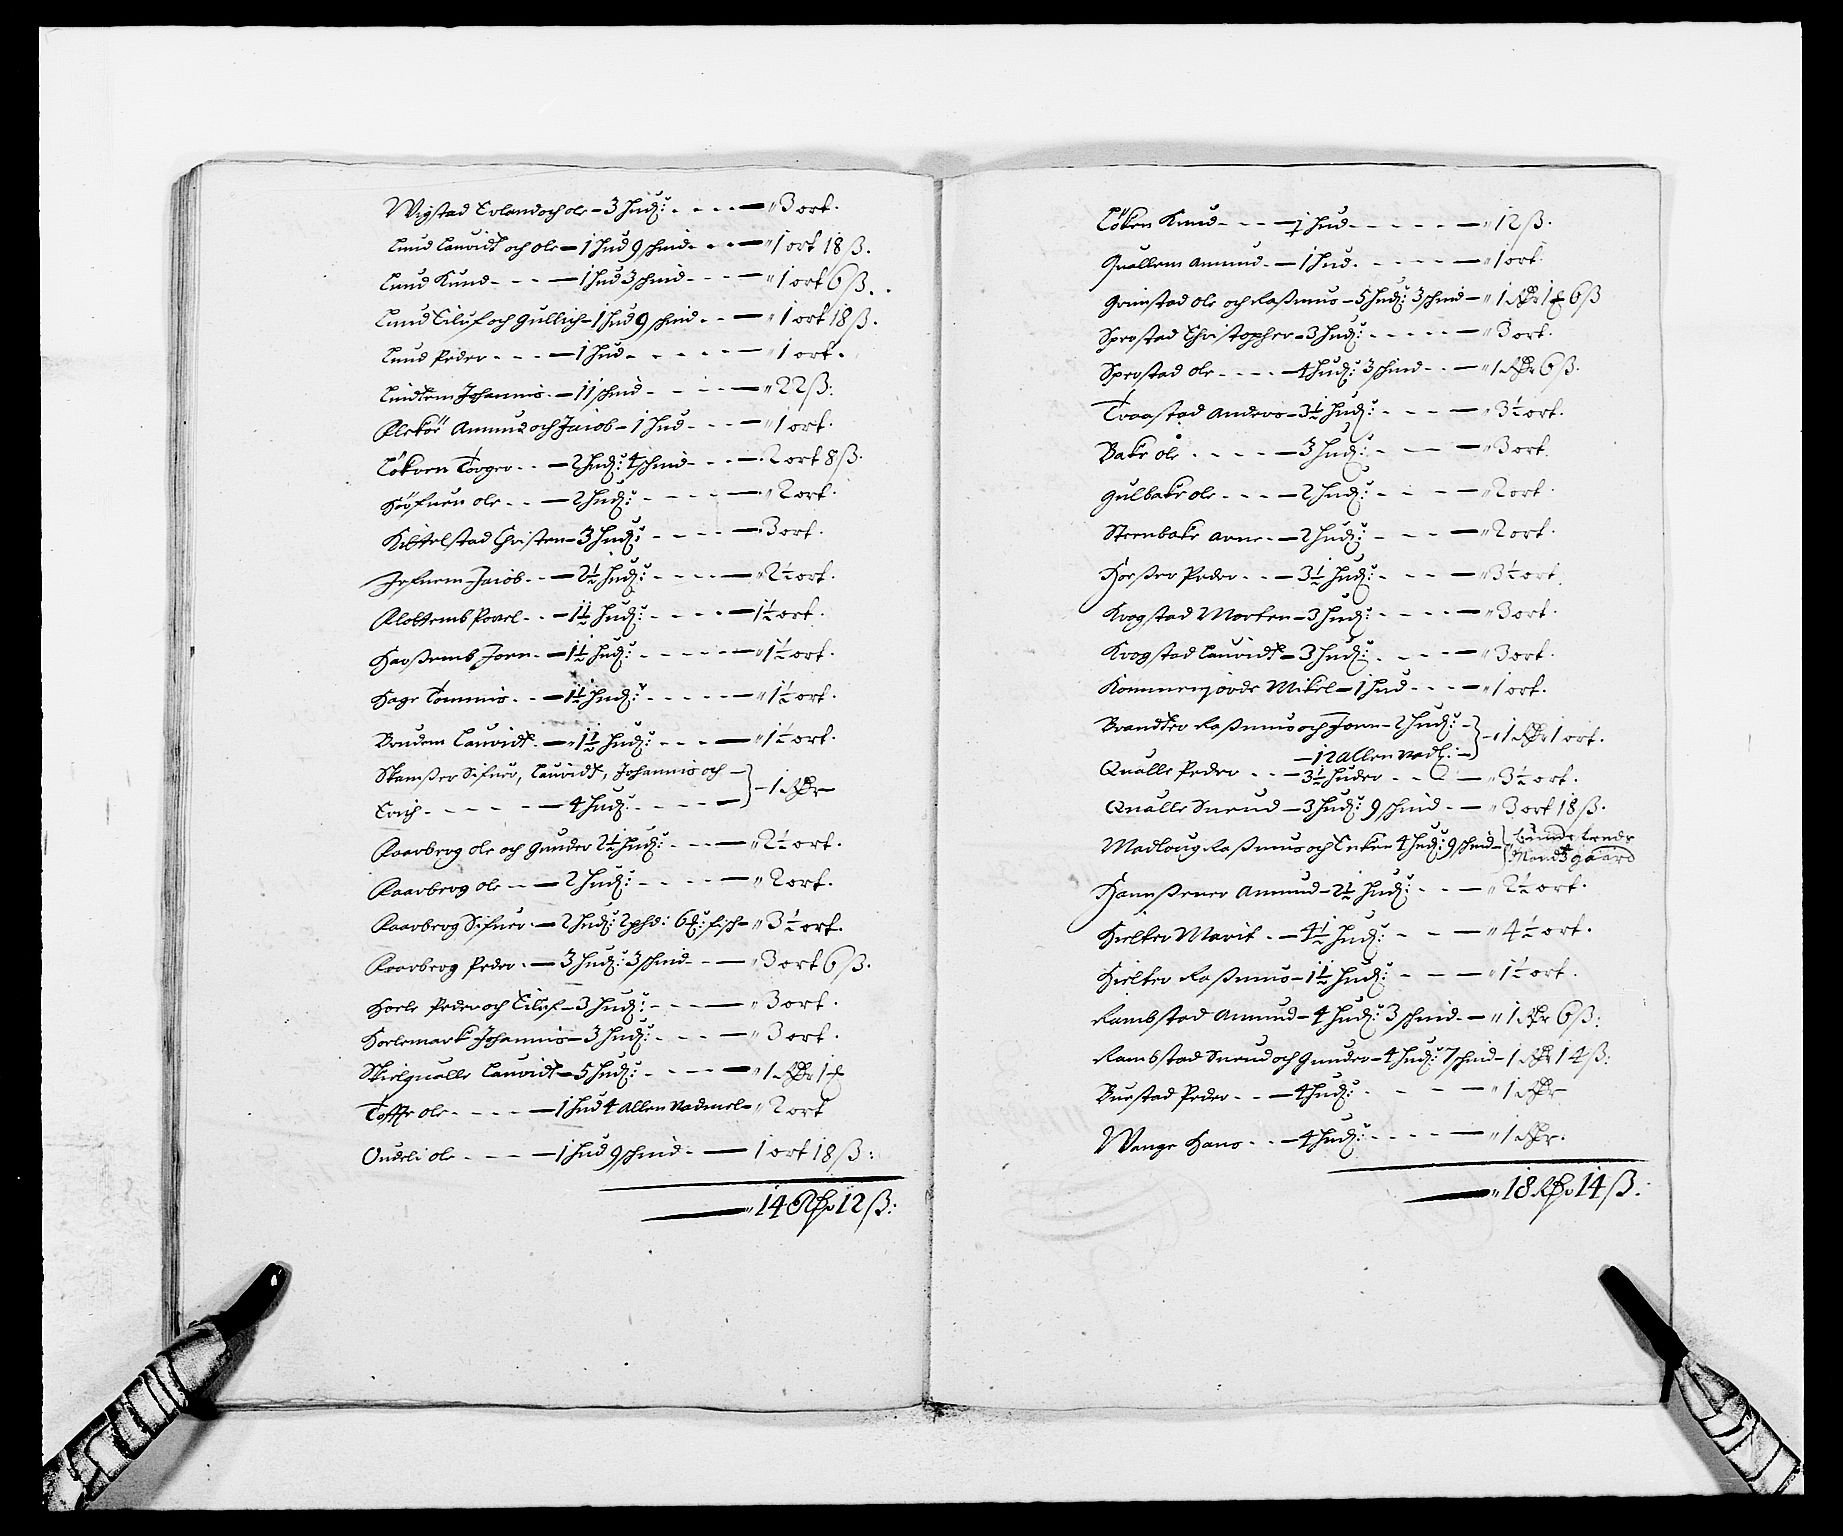 Wigstad Erland och ole – 3 hud: - - - - " 3 ort.
Lund Lauridt och ole – 1 hud 9 schind - - - " 1 ort 18 ß.
Lund Knud - - - – 1 hud 3 schind - - - " 1 ort 6 ß.
Lund Eiluf och Gullich – 1 hud 9 schind - - " 1 ort 18 ß.
Lund Peder - - - – 1 hud - - - - - " 1 ort.
Lindtem Johannis - – 11 schind - - - - " 22 ß:
Klekör Amund och Jacob – 1 hud - - - " 1 ort.
Lökren Torger - - – 2 hud: 4 schind - - - 2 ort 8 ß.
Höfnen ole - - – 2 hud: - - - - " 2 ort.
Kittelstad Christen – 3 hud: - - - - 3 ort.
Jefnem Jacob - - – 2½ hud: - - - - " 2½ ort.
Klottems Povel - - – 1½ hud: - - - - 1½ ort.
Harßems Joen - – 1½ hud: - - - - " 1½ ort.
Hage Tommis - - – 1½ hud: - - - - - " 1½ ort.
Brudem Lauridt - – 1½ hud: - - - - " 1½ ort.
Skamßer Sifuer, Lauridt, Johannis och –
Erich - - - - – 4 hud: - - - – } – 1 Rdr
Raarberg ole och Gunder 2½ hud: - - - " 2½ ort.
Raarberg ole - - – 2 hud: - - - - " 2 ort.
Raarberg Sifuer - – 2 hud: 2 phd: 6 : fisch – " 3½ ort.
Raarberg Peder - – 3 hud: 3 schind - - - " 3 ort 6 ß.
Hoele Peder och Eiluf – 3 hud: - - - " 3 ort.
Hoelemark Johannis – 3 hud: - - - " 3 ort.
Skielqualle Lauridt – 5 hud: - - - - " 1 Rdr 1
Toffte ole - - - - – 1 hud 4 Allen Vadmel – " 2 ort
Undeli ole - - - – 1 hud 9 schind - – 1 ort 18 ß:
" 14 Rdr 12 ß:
Löken Knud - - - – ½ hud - - - - - " 12 ß.
Quallem Amund - – 1 hud. - - - - " 1 ort.
Grimstad ole och Raßmus – 5 hud: 3 schind – " 1 Rdr 1 6 ß
Sprostad Christopher – 3 hud: - - - - - " 3 ort.
Sprostad ole - - - - 4 hud: 3 schind - - " 1 Rdr 6 ß.
Traastad Anders – 3½ hud: - - - " 3½ ort.
Bake ole - - - - - 3 hud: - - - " 3 ort.
Gulbake ole - - - – 2 hud: - - - " 2 ort.
Steenbake Arne - – 2 hud: - - - " 2 ort.
Horßer Peder - - – 3½ hud: - - - " 3½ ort.
Krogstad Morten – 3 hud: - - - - " 3 ort.
Krogstad Lauridt – 3 hud: - - - " 3 ort.
Kommenjorde Mikel – 1 hud - - - " 1 ort.
Brandter Raßmus och Joen – 2 hud: - } – 1 Rdr 1 ort.
– 12 Allen Vadl: –
Qualle Peder - - – 3½ huder - - - " 3½ ort.
Qualle Sneud – 3 hud: 9 schind - – " 3 ort 18 ß.
Madloug Raßmus och 4 hud: 9 schind – {
gaard
Hanßener Amund – 2½ hud: - - - " 2½ ort.
Hielter Marit - – 4½ hud: - - – " 4½ ort.
Hielter Raßmus – 1½ hud: - - – " 1½ ort.
Rambstad Amund – 4 hud: 3 schind - – " 1 Rdr 6 ß:
Rambstad Sneud och Gunder – 4 hud: 7 schind – 1 Rdr 14 ß:
Buestad Peder - - – 4 hud: - - - " 1 Rdr
Wange Hans - - – 4 hud: - - - - " 1 Rdr.
" 18 Rdr 14 ß.